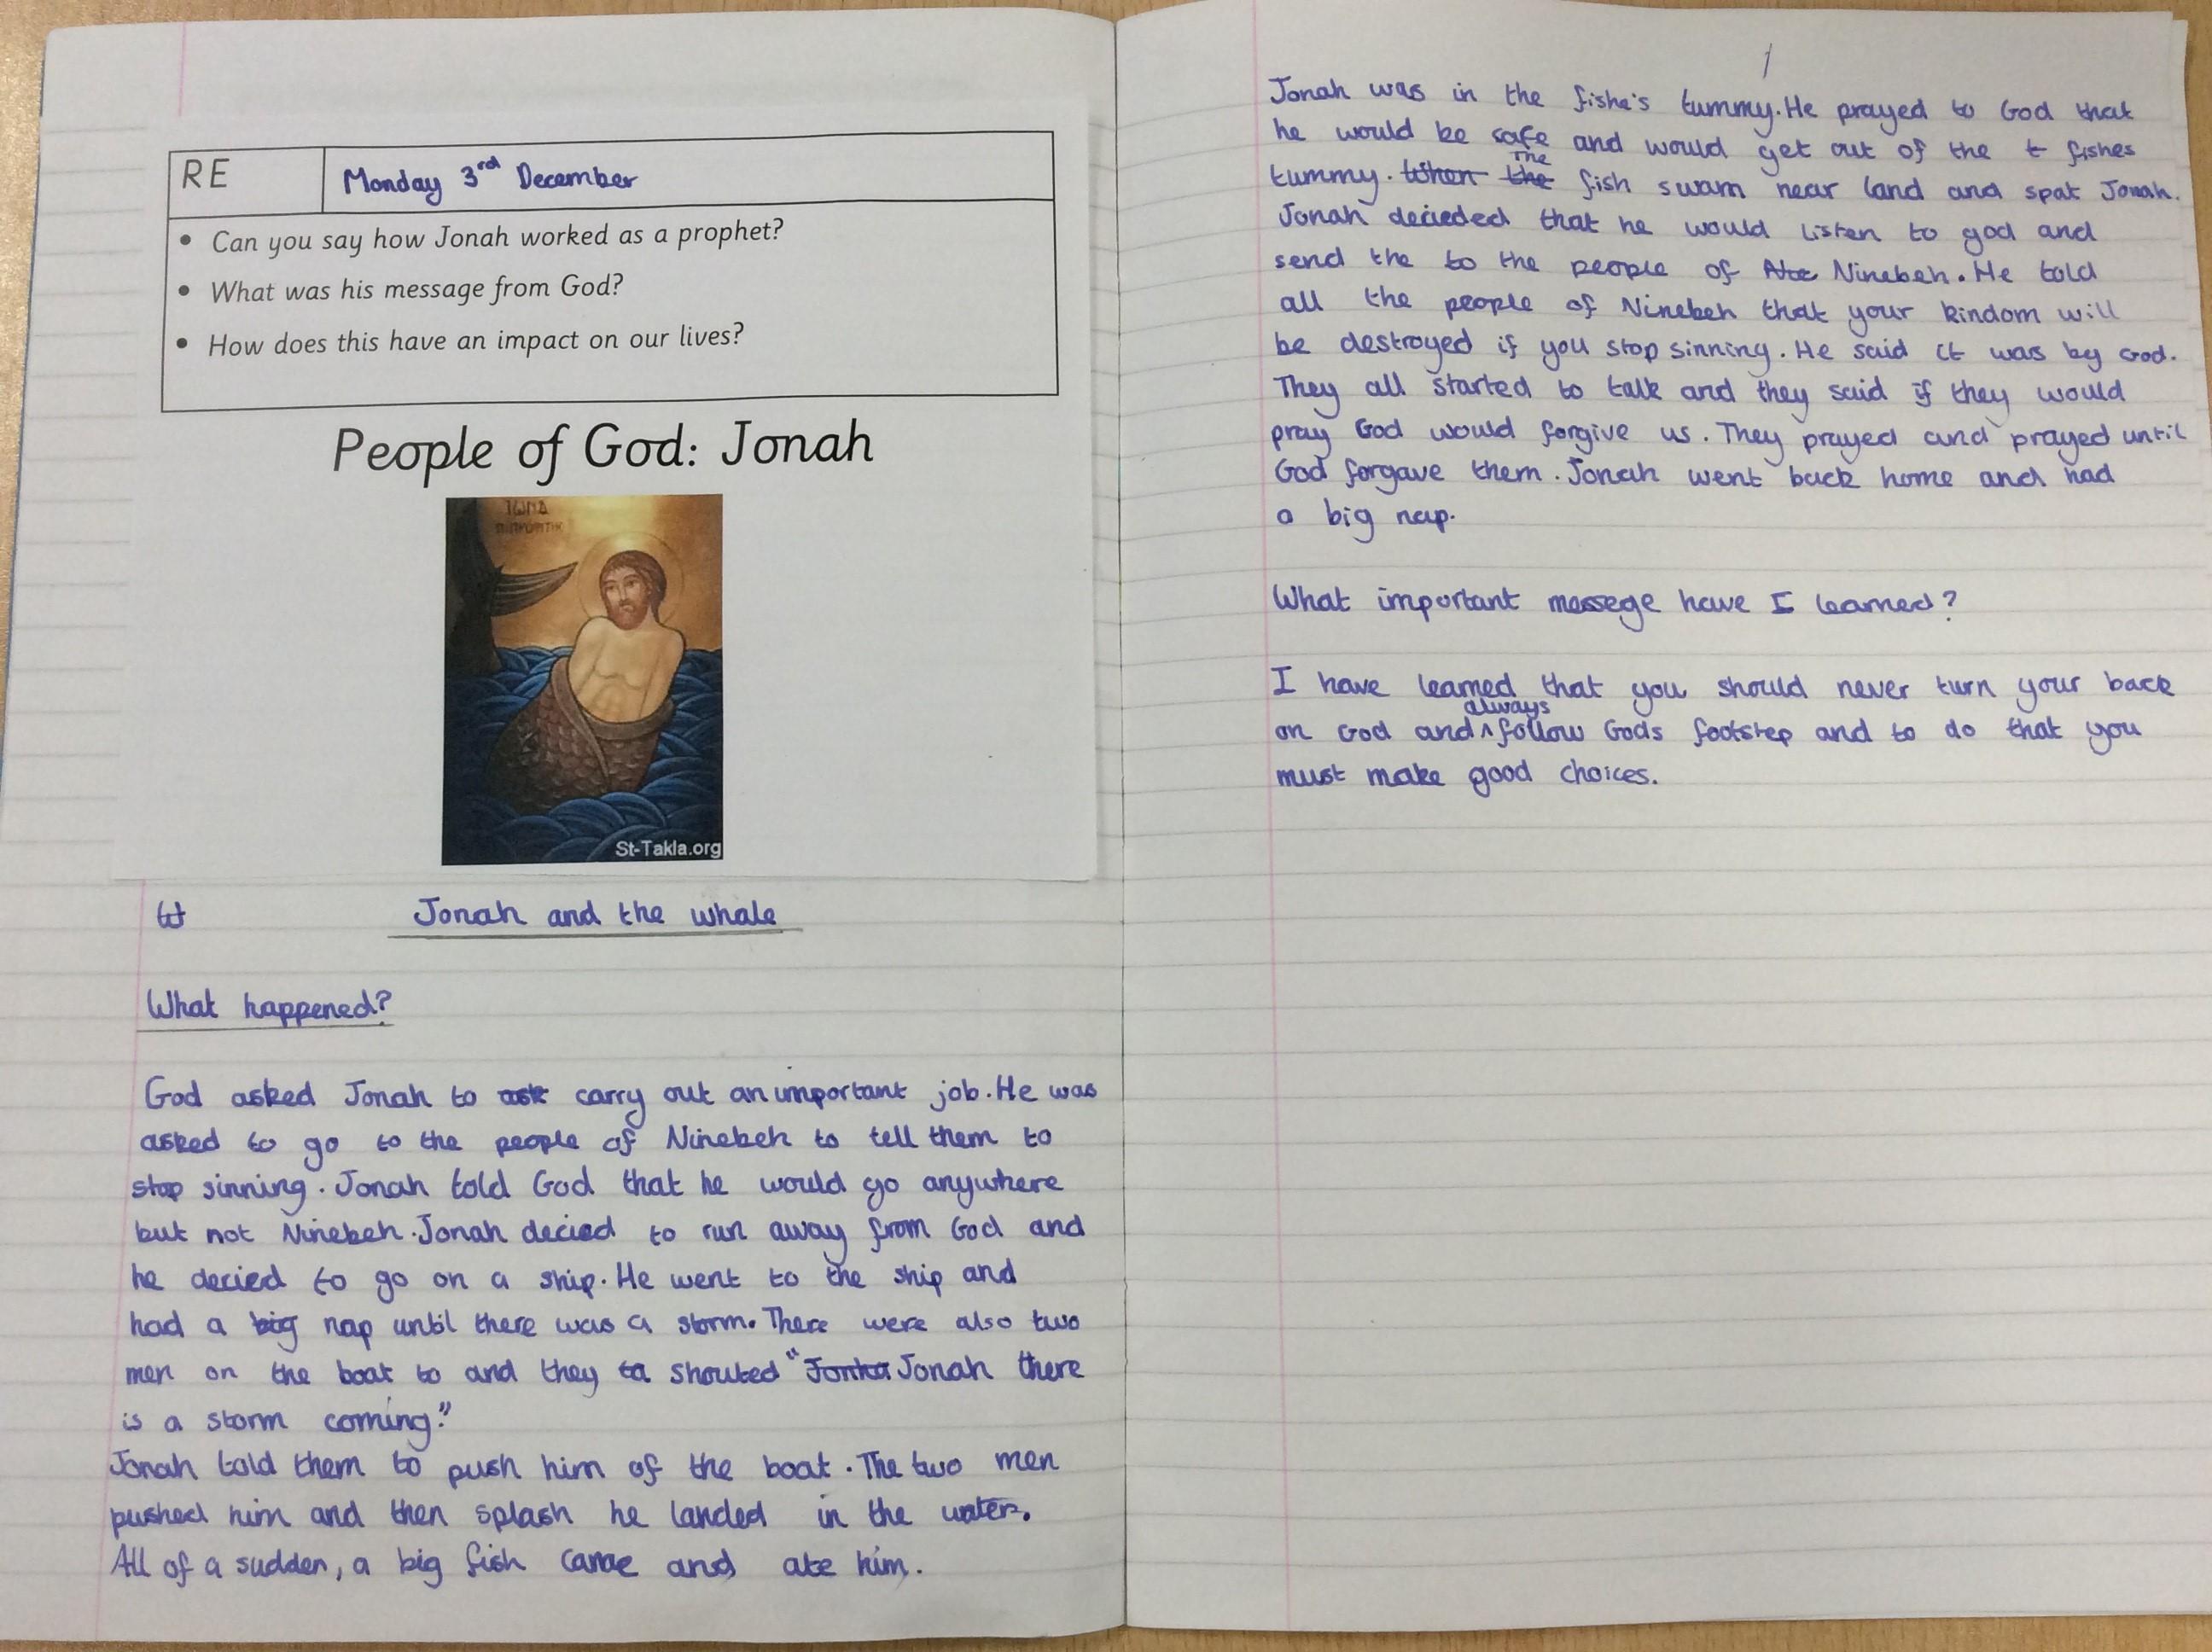 RE
Monday 3rd December
• Can you say how Jonah worked as a prophet?
• What was his message from God?
• How does this have an impact on our lives?
People of God: Jonah
St-Takla.org
Jonah and the whale
What happened?
God asked Jonah to ask carry out an important job. He was
asked to go to the people of Ninebeh to tell them to
stop sinning. Jonah told God that he would go anywhere
but not Ninebeh. Jonah decied to run away from God and
he decied to go on a ship. He went to the ship and
had a big nap until there was a storm. There were also two
men on the boat to and they ta shouted "Jonha Jonah there
is a storm coming."
Jonah told them to push him of the boat. The two men
pushed him and then splash he landed in the water.
All of a sudden, a big fish came and ate him.
Jonah was in the fishe's tummy. He prayed to God that
he would be safe and would get out of the t fishes
tummy. When the The fish swam near land and spat Jonah.
Jonah decieded that he would listen to god and
send the to the people of Ninebeh. He told
all the people of Ninebeh that your kindom will
be destroyed if you stop sinning. He said it was by God.
They all started to talk and they said if they would
pray God would forgive us. They prayed and prayed until
God forgave them. Jonah went back home and had
a big nap.
What important messege have I learned?
I have learned that you should never turn your back
on God and always follow Gods footstep and to do that you
must make good choices.